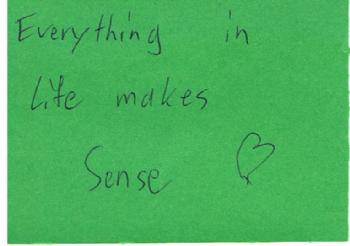 Everything in
Life makes
Sense ♡